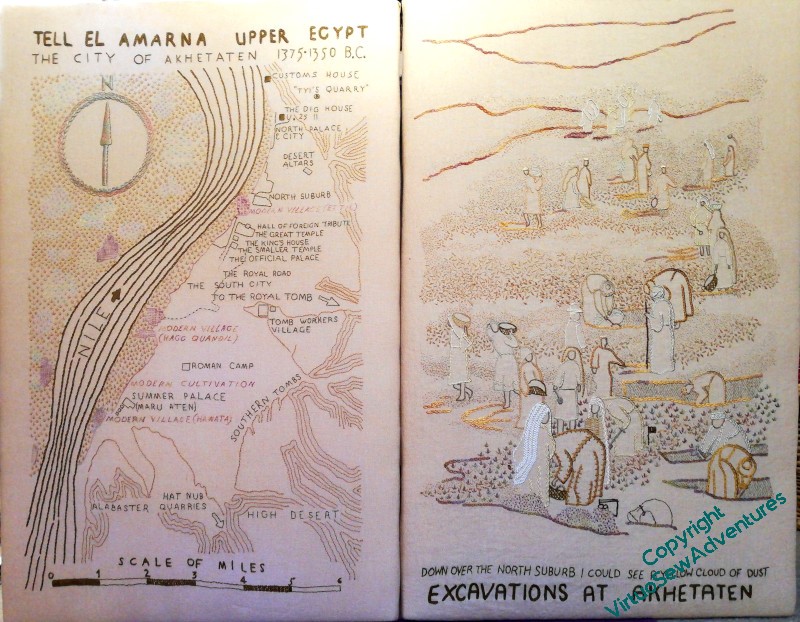 TELL EL AMARNA UPPER EGYPT
THE CITY OF AKHETATEN 1375-1350 B.C.
N
CUSTOMS HOUSE
"TYI'S QUARRY"
THE DIG HOUSE
NORTH PALACE
DESERT
ALTARS
NORTH SUBURB
MODERN VILLAGE
HALL OF FOREIGN TRIBUTE
THE GREAT TEMPLE
THE KING'S HOUSE
THE SMALLER TEMPLE
THE OFFICIAL PALACE
THE ROYAL ROAD
THE SOUTH CITY
TO THE ROYAL TOMB
NILE
TOMB WORKERS
VILLAGE
MODERN VILLAGE
(HAGG QUANDIL)
ROMAN CAMP
MODERN CULTIVATION
SUMMER PALACE
(MARU ATEN)
MODERN VILLAGE (HAWATA)
SOUTHERN TOMBS
HAT NUB
ALABASTER QUARRIES
HIGH DESERT
SCALE OF MILES
0 1 2 3 4 5 6
DOWN OVER THE NORTH SUBURB I COULD SEE A YELLOW CLOUD OF DUST
EXCAVATIONS AT AKHETATEN
Copyright
VirtuoSewAdventures